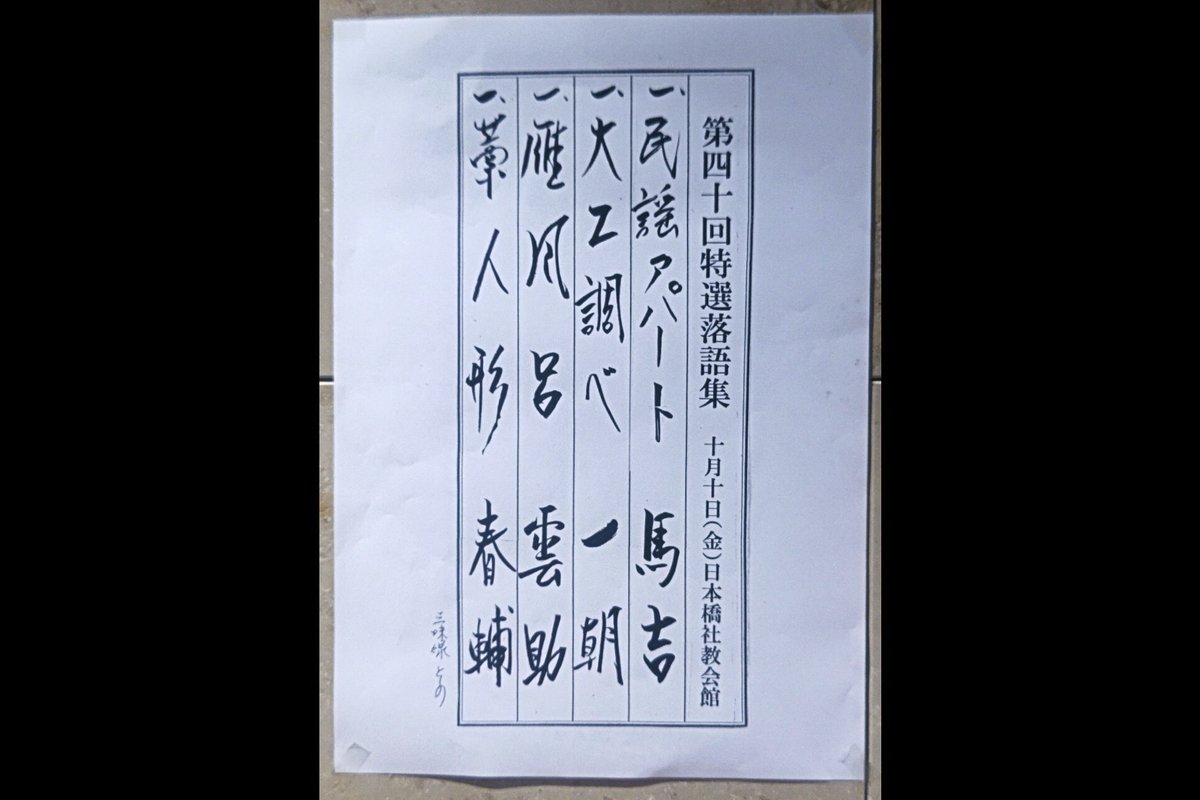 第四十回特選落語集 十月十日(金)日本橋社教会館
一、民謡アパート 馬吉
一、大工調べ 一朝
一、雁風呂 雲助
一、藁人形 春輔
三味線 との